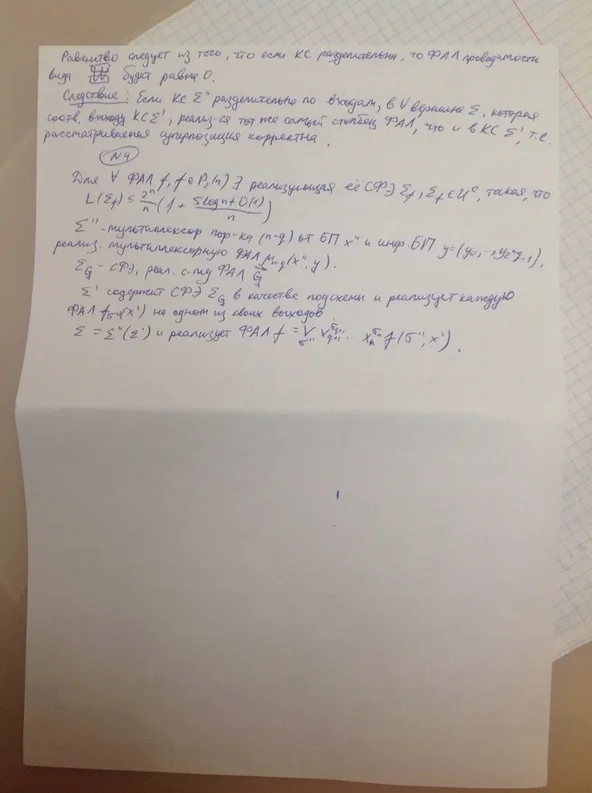 Равенство следует из того, что если КС разделительна, то ФАЛ проводимости
вида будет равна 0.
Следствие: Если КС Σ" разделительно по входам, в ∀ вершине Σ, которая
соотв. выходу КС Σ', реализ-ся тот же самый столбец ФАЛ, что и в КС Σ', т.е.
рассматриваемая суперпозиция корректна.
№4
Для ∀ ФАЛ f, f ∈ P₂(n) ∃ реализующая её СФЭ Σf, Σf ∈ Uᶜ, такая, что
L(Σf) ≤ 2ⁿ/n (1 + (5logn + O(1))/n)
Σ" - мультиплексор пор-ка (n-q) от БП x" и инф. БП y = (y₀, ..,
реализ. мультиплексорную ФАЛ μₙ₋q(x", y).
ΣG - СФЭ, реал. с-му ФАЛ G
Σ' содержит СФЭ ΣG в качестве подсхемы и реализует каждую
ФАЛ fσ"(x') на одном из своих выходов
Σ = Σ"(Σ') и реализует ФАЛ f = ⋁σ" ... xₙ^σₙ f(σ", x').